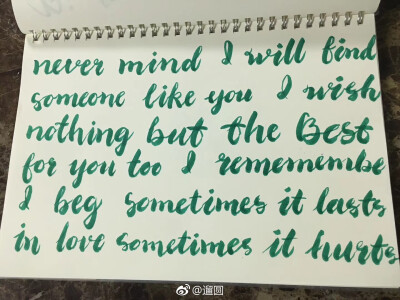 never mind I will find
someone like you I wish
nothing but the Best
for you too I rememembe
I beg sometimes it lasts
in love sometimes it hurts
@遛圆